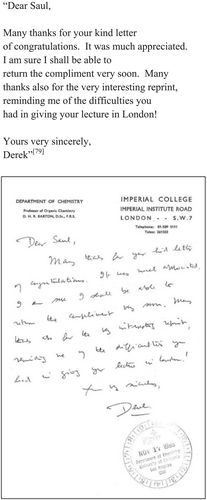 “Dear Saul,
Many thanks for your kind letter
of congratulations. It was much appreciated.
I am sure I shall be able to
return the compliment very soon. Many
thanks also for the very interesting reprint,
reminding me of the difficulties you
had in giving your lecture in London!
Yours very sincerely,
Derek”[79]
DEPARTMENT OF CHEMISTRY
Professor of Organic Chemistry
D. H. R. BARTON, D.Sc., F.R.S.
IMPERIAL COLLEGE
IMPERIAL INSTITUTE ROAD
LONDON - - S.W.7
Telephone:
Telex: 261503
Dear Saul,
Many thanks for your kind letter
of congratulations. It was much appreciated.
I am sure I shall be able to
return the compliment very soon. Many
thanks also for the very interesting reprint,
reminding me of the difficulties you
had in giving your lecture in London!
Yours very sincerely,
Derek
NOV 17 1969
Department of Chemistry
University of California
Los Angeles